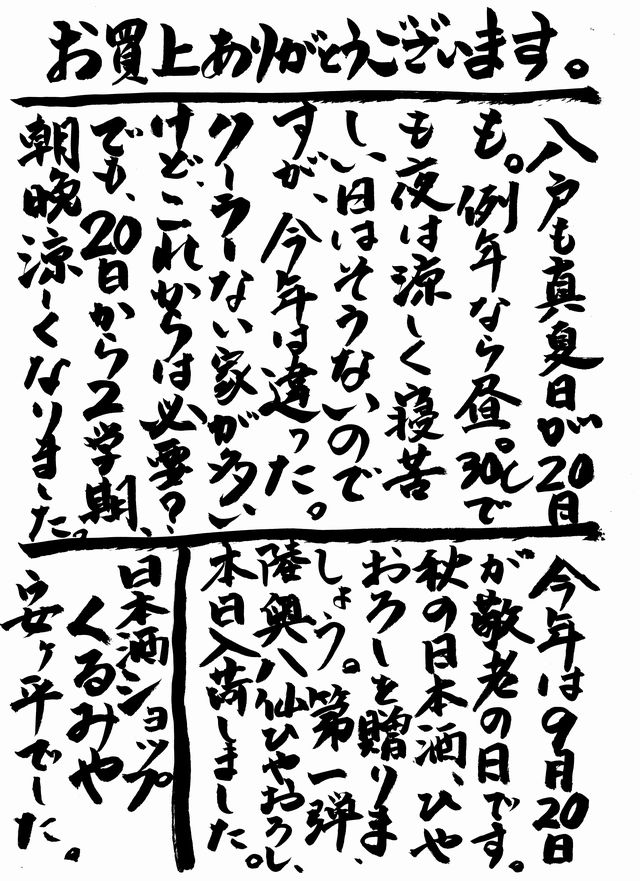 お買上ありがとうございます。
八戸も真夏日が20日
も。例年なら昼30℃で
も夜は涼しく寝苦
しい日はそうないので
すが、今年は違った。
クーラーない家が多い
けど、これからは必要?
でも、20日から2学期、
朝晩涼しくなりました。
今年は9月20日
が敬老の日です。
秋の日本酒、ひや
おろしを贈りま
しょう。第一弾、
陸奥八仙ひやおろし、
本日入荷しました。
日本酒ショップ
くるみや
安ヶ平でした。